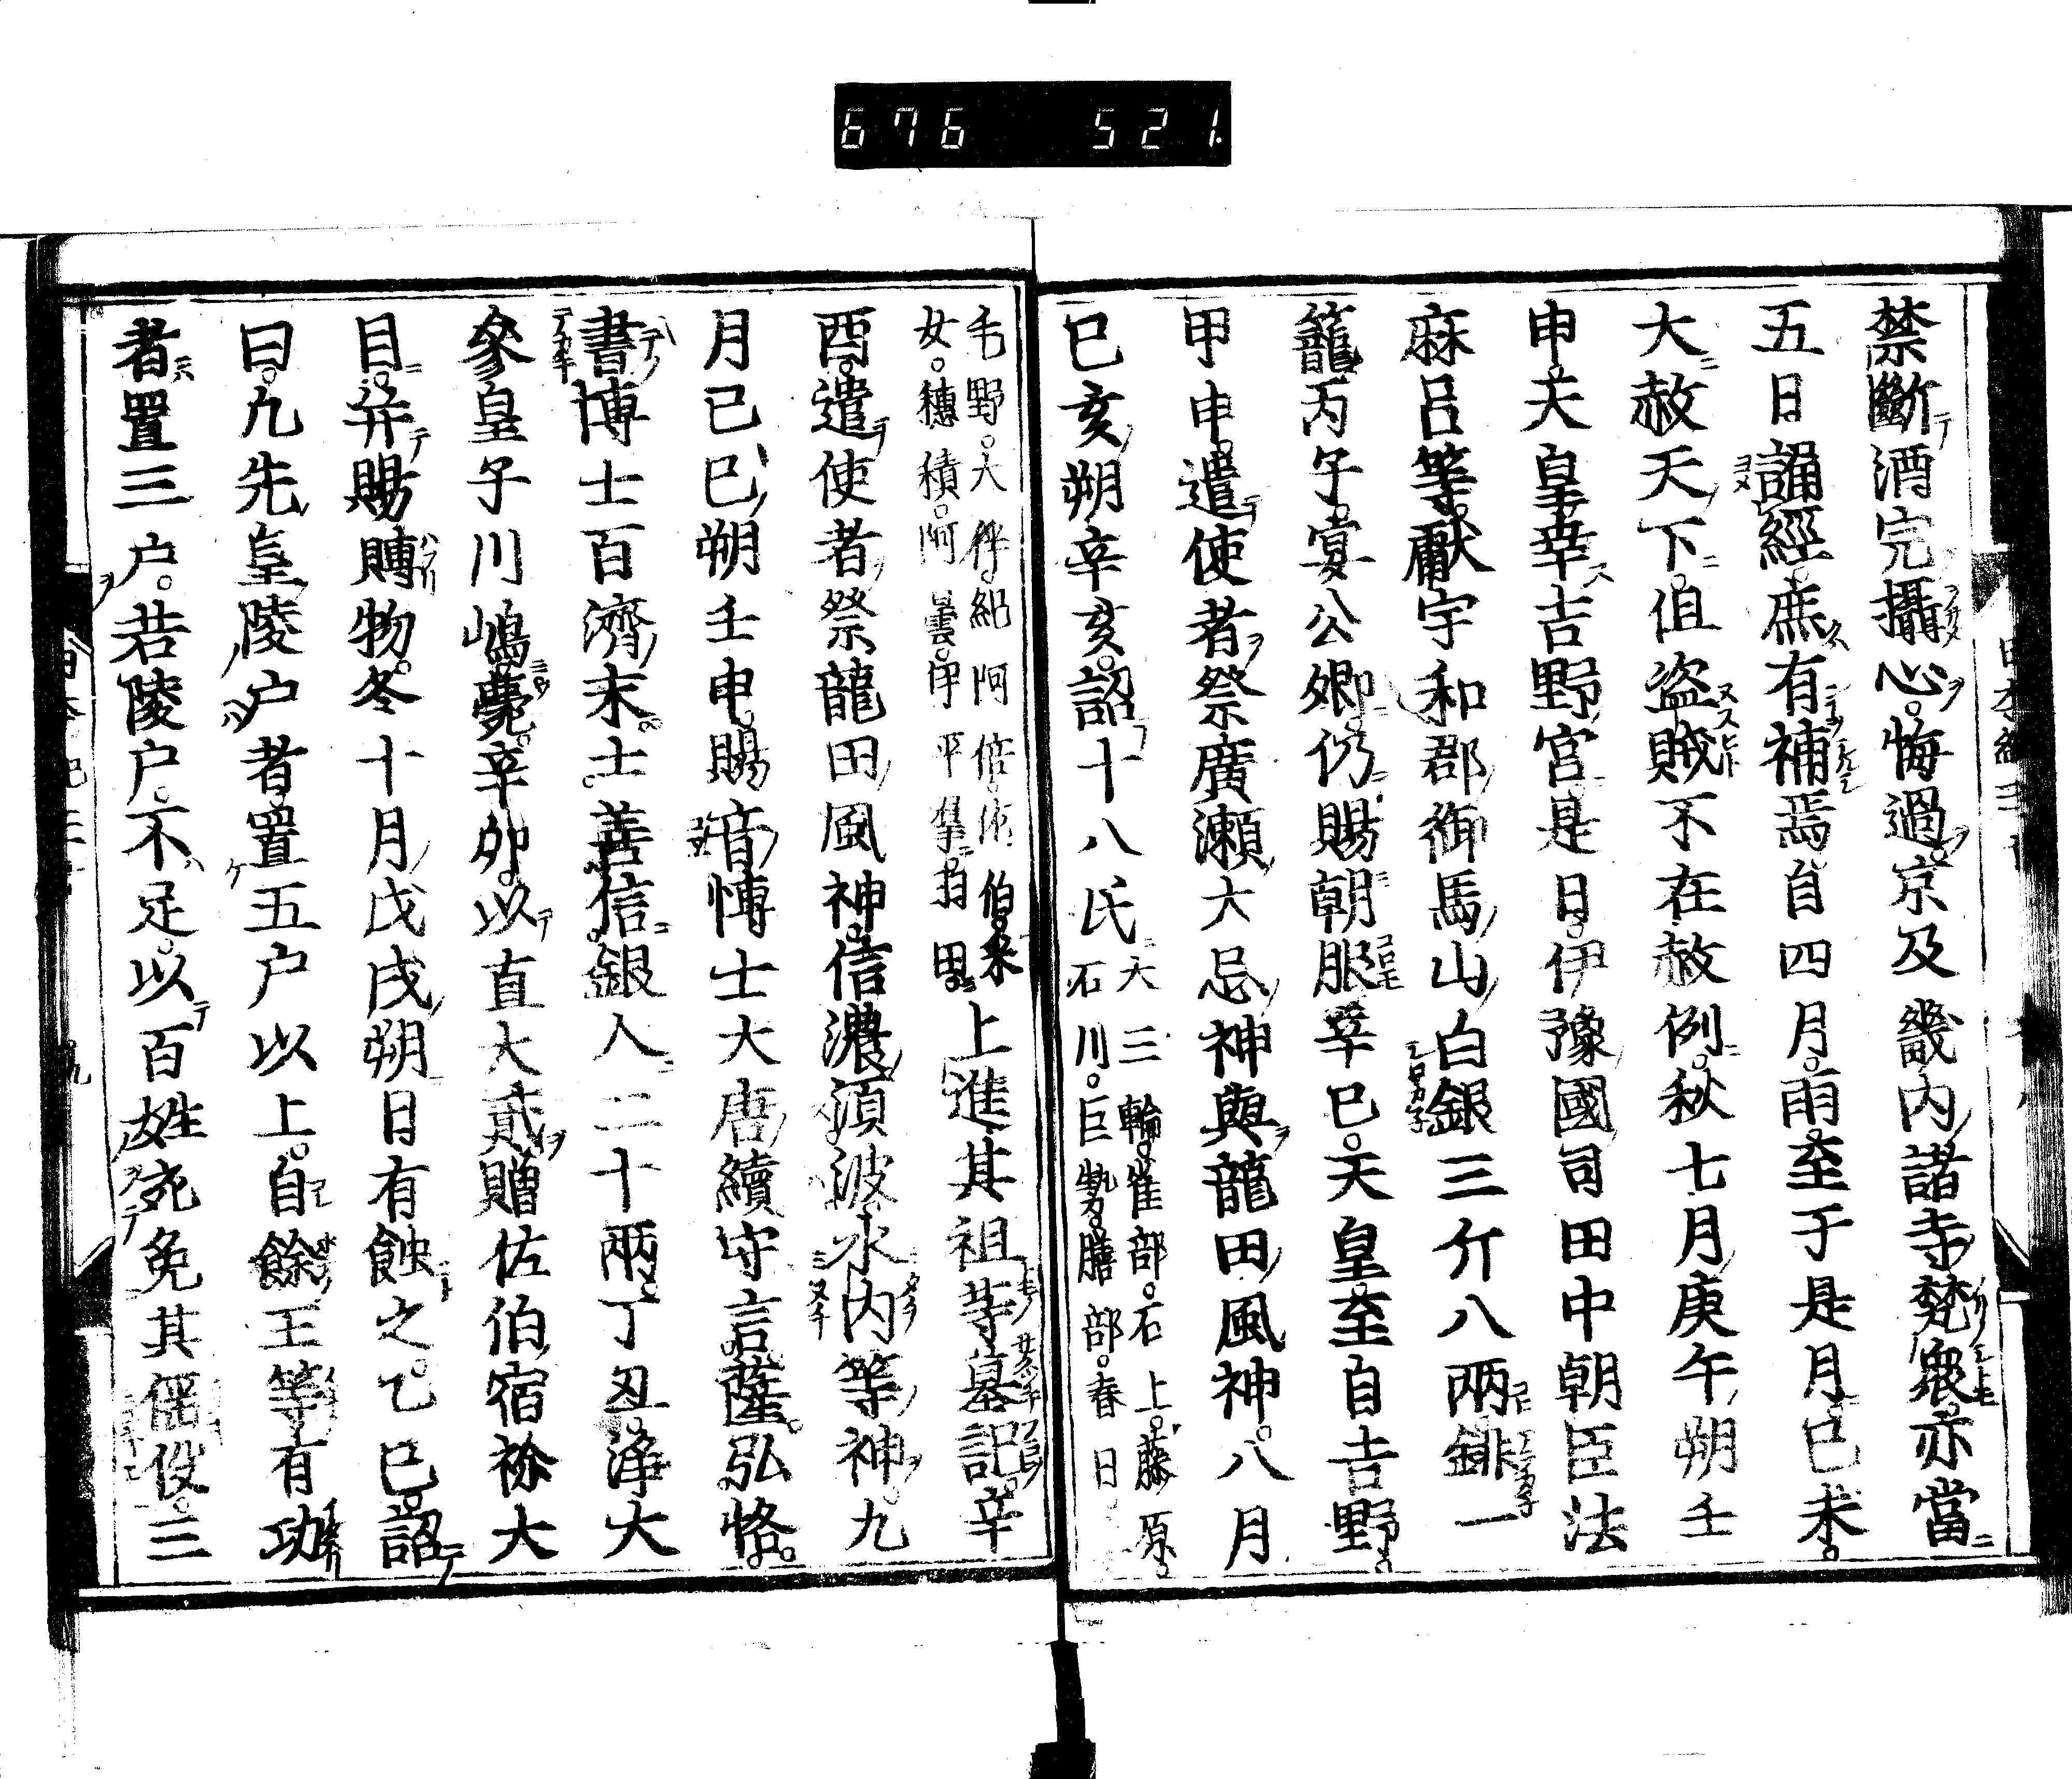 676 521.
禁斷酒完攝心悔過京及畿内諸寺梵衆亦當
五日誦經庶有補焉自四月雨至于是月己未
大赦天下但盗賊不在赦例秋七月庚午朔壬
申天皇幸吉野宮是日伊豫國司田中朝臣法
麻呂等獻宇和郡御馬山白銀三斤八兩𨥥一
籠丙子宴公卿仍賜朝服辛巳天皇至自吉野
甲申遣使者祭廣瀬大忌神與龍田風神八月
巳亥朔辛亥詔十八氏
大三輪雀部石上藤原
石川巨勢膳部春日
上
毛野大伴紀阿倍佐伯釆
女穗積阿曇伊平羣羽田
上進其祖等墓記辛
酉遣使者祭龍田風神信濃須波水内等神九
月己巳朔壬申賜音博士大唐續守言薩弘恪
書博士百濟末士善信銀人二十兩丁丑淨大
參皇子川嶋薨辛卯以直大貳贈佐伯宿祢大
目并賜賻物冬十月戊戌朔日有蝕之乙巳詔
曰凡先皇陵戸者置五戸以上自餘王等有功
者置三戸若陵戸不足以百姓宛免其徭役三